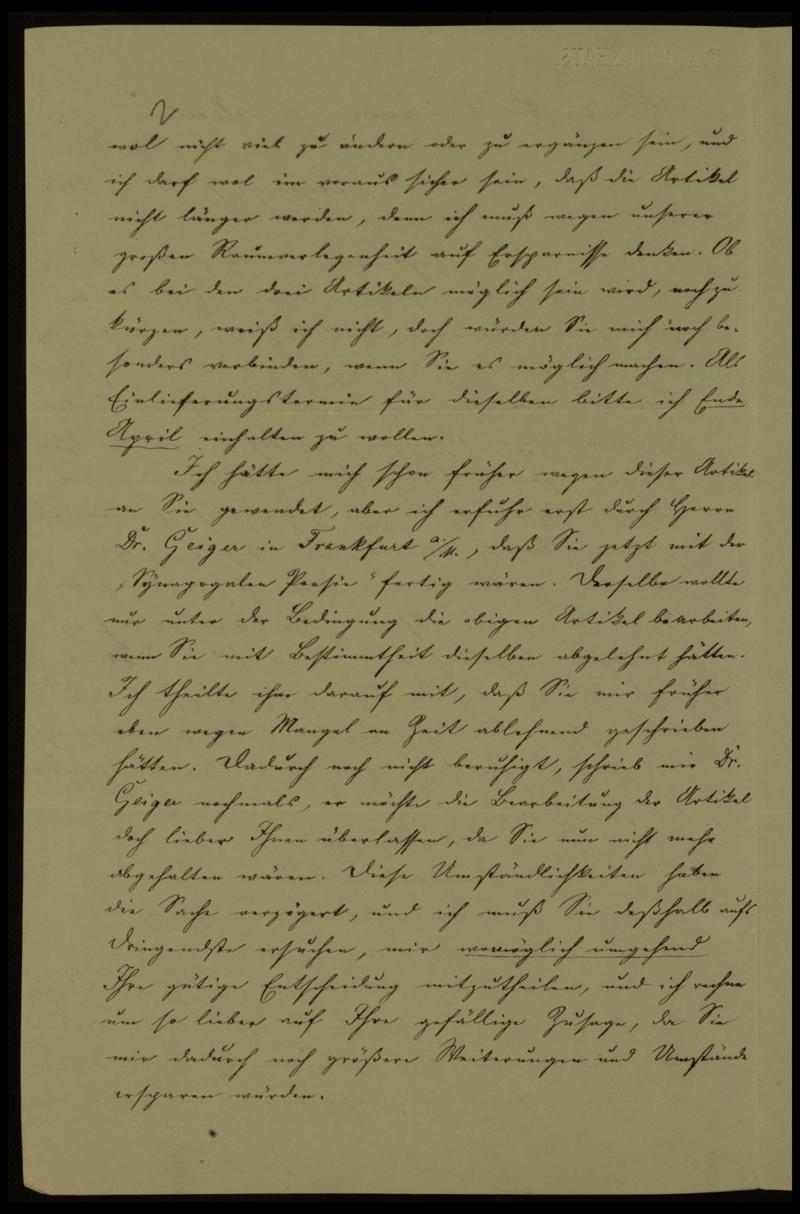 2
wol nicht viel zu ändern oder zu ergänzen sein, und
ich darf wol im voraus sicher sein, daß die Artikel
nicht länger werden, denn ich muß wegen unserer
großen Raumverlegenheit auf Ersparnisse denken. Ob
es bei den drei Artikeln möglich sein wird, noch zu
kürzen, weiß ich nicht, doch würden Sie mich noch be-
sonders verbinden, wenn Sie es möglich machen. Als
Einlieferungstermin für dieselben bitte ich Ende
April einhalten zu wollen.
Ich hätte mich schon früher wegen dieser Artikel
an Sie gewendet, aber ich erfuhr erst durch Herrn
Dr. Geiger in Frankfurt a/M., daß Sie jetzt mit der
„Synagogalen Poesie“ fertig wären. Derselbe wollte
nur unter der Bedingung die obigen Artikel bearbeiten,
wenn Sie mit Bestimmtheit dieselben abgelehnt hätten.
Ich theilte ihm darauf mit, daß Sie mir früher
eben wegen Mangel an Zeit ablehnend geschrieben
hätten. Dadurch noch nicht beruhigt, schrieb mir Dr.
Geiger nochmals, er möchte die Bearbeitung der Artikel
doch lieber Ihnen überlassen, da Sie nun nicht mehr
abgehalten wären. Diese Umständlichkeiten haben
die Sache verzögert, und ich muß Sie deßhalb aufs
Dringendste ersuchen, mir womöglich umgehend
Ihre gütige Entscheidung mitzutheilen, und ich rechne
um so lieber auf Ihre gefällige Zusage, da Sie
mir dadurch noch größere Weiterungen und Umstände
ersparen würden.